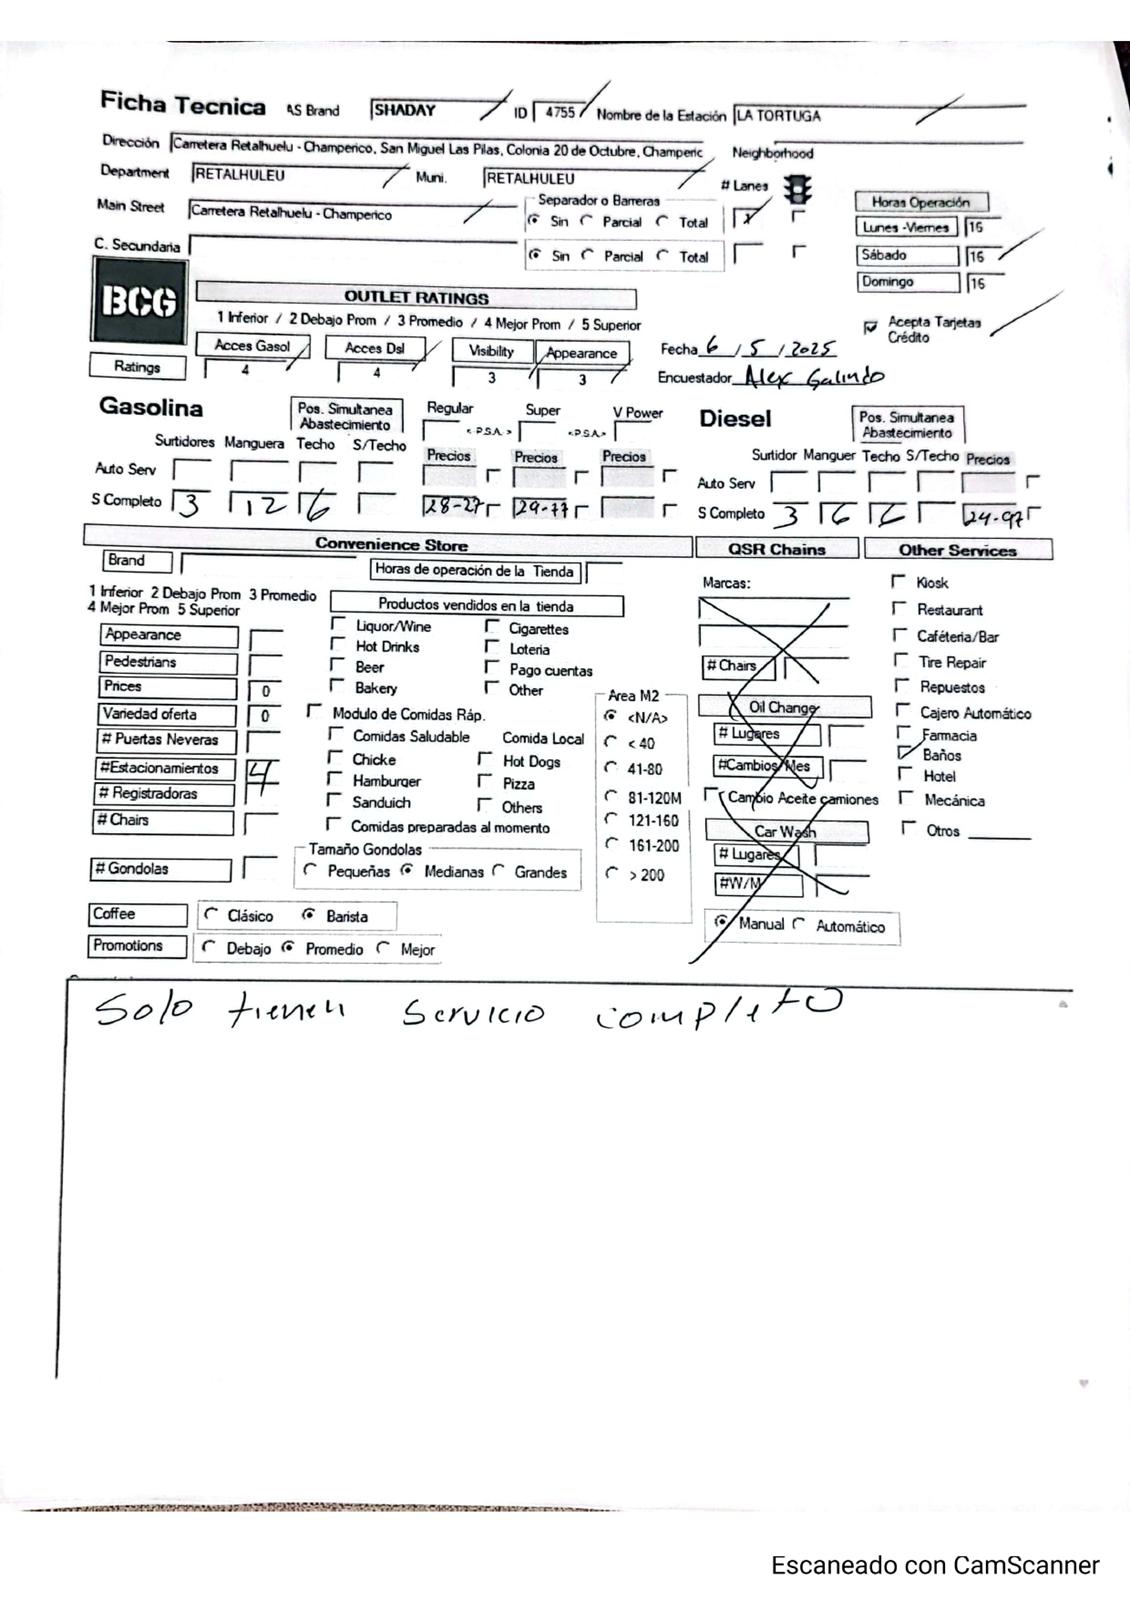 Ficha Tecnica AS Brand SHADAY ID 4755 Nombre de la Estación LA TORTUGA
Dirección Carretera Retalhuelu - Champerico, San Miguel Las Pilas, Colonia 20 de Octubre, Champeric Neighborhood
Department RETALHULEU Muni. RETALHULEU # Lanes
Main Street Carretera Retalhuelu - Champerico Separador o Barreras Horas Operación
Sin Parcial Total Lunes -Viernes 16
C. Secundaria Sin Parcial Total Sábado 16
Domingo 16
BCG OUTLET RATINGS
1 Inferior / 2 Debajo Prom / 3 Promedio / 4 Mejor Prom / 5 Superior Acepta Tarjetas Crédito
Acces Gasol Acces Dsl Visibility Appearance Fecha 6 / 5 / 2025
Ratings 4 4 3 3 Encuestador Alex Galindo
Gasolina Pos. Simultanea Abastecimiento Regular Super V Power Diesel Pos. Simultanea Abastecimiento
<P.S.A.> <P.S.A>
Surtidores Manguera Techo S/Techo Precios Precios Precios Surtidor Manguer Techo S/Techo Precios
Auto Serv Auto Serv
S Completo 3 12 6 28-27 29-77 S Completo 3 6 6 24-97
Convenience Store QSR Chains Other Services
Brand Horas de operación de la Tienda Marcas: Kiosk
1 Inferior 2 Debajo Prom 3 Promedio
4 Mejor Prom 5 Superior Productos vendidos en la tienda Restaurant
Appearance Liquor/Wine Cigarettes Caféteria/Bar
Pedestrians Hot Drinks Loteria # Chairs Tire Repair
Prices 0 Beer Pago cuentas Repuestos
Bakery Other Area M2
Variedad oferta 0 Modulo de Comidas Ráp. <N/A> Oil Change Cajero Automático
# Puertas Neveras Comidas Saludable Comida Local < 40 # Lugares Farmacia
Baños
#Estacionamientos 4 Chicke Hot Dogs 41-80 #Cambios/Mes Hotel
Hamburger Pizza
# Registradoras Sanduich Others 81-120M Cambio Aceite camiones Mecánica
# Chairs Comidas preparadas al momento 121-160 Car Wash Otros
Tamaño Gondolas 161-200 # Lugares
# Gondolas Pequeñas Medianas Grandes > 200 #W/M
Coffee Clásico Barista Manual Automático
Promotions Debajo Promedio Mejor
Solo tienen servicio completo
Escaneado con CamScanner